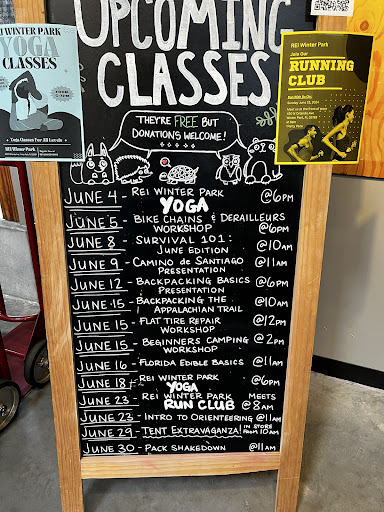 UPCOMING
CLASSES
THEY'RE FREE BUT
DONATIONS WELCOME!
JUNE 4 - REI WINTER PARK YOGA @6PM
JUNE 5 - BIKE CHAINS & DERAILLEURS WORKSHOP @6PM
JUNE 8 - SURVIVAL 101: JUNE EDITION @10AM
JUNE 9 - CAMINO de SANTIAGO PRESENTATION @11AM
JUNE 12 - BACKPACKING BASICS PRESENTATION @6PM
JUNE 15 - BACKPACKING THE APPALACHIAN TRAIL @10AM
JUNE 15 - FLAT TIRE REPAIR WORKSHOP @12PM
JUNE 15 - BEGINNERS CAMPING WORKSHOP @2PM
JUNE 16 - FLORIDA EDIBLE BASICS @11AM
JUNE 18 - REI WINTER PARK YOGA @6PM
JUNE 23 - REI WINTER PARK RUN CLUB MEETS @8AM
JUNE 23 - INTRO TO ORIENTEERING @11AM
JUNE 29 - TENT EXTRAVAGANZA! IN STORE FROM 10AM
JUNE 30 - PACK SHAKEDOWN @11AM
I WINTER PARK
YOGA
CLASSES
Yoga Classes For All Levels
REI Winter Park
REI Winter Park
Join Our
RUNNING
CLUB